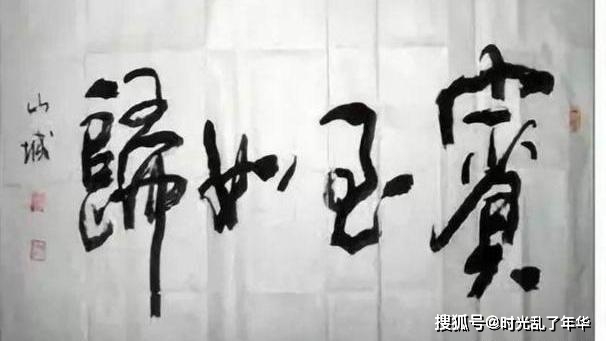 賓至如歸
山城
搜狐号@时光乱了年华